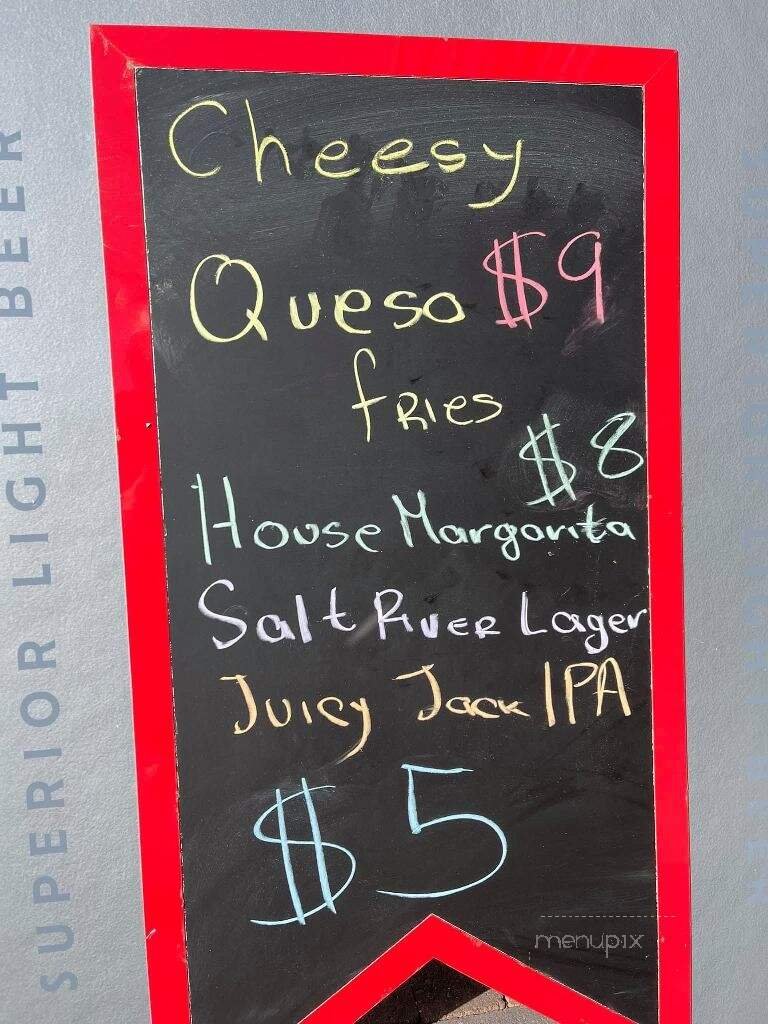 Cheesy
Queso $9
fries
$8
House Margorita
Salt River Lager
Juicy Jack IPA
$5
SUPERIOR LIGHT BEER
SUPERIOR LIGHT BEER
menupix